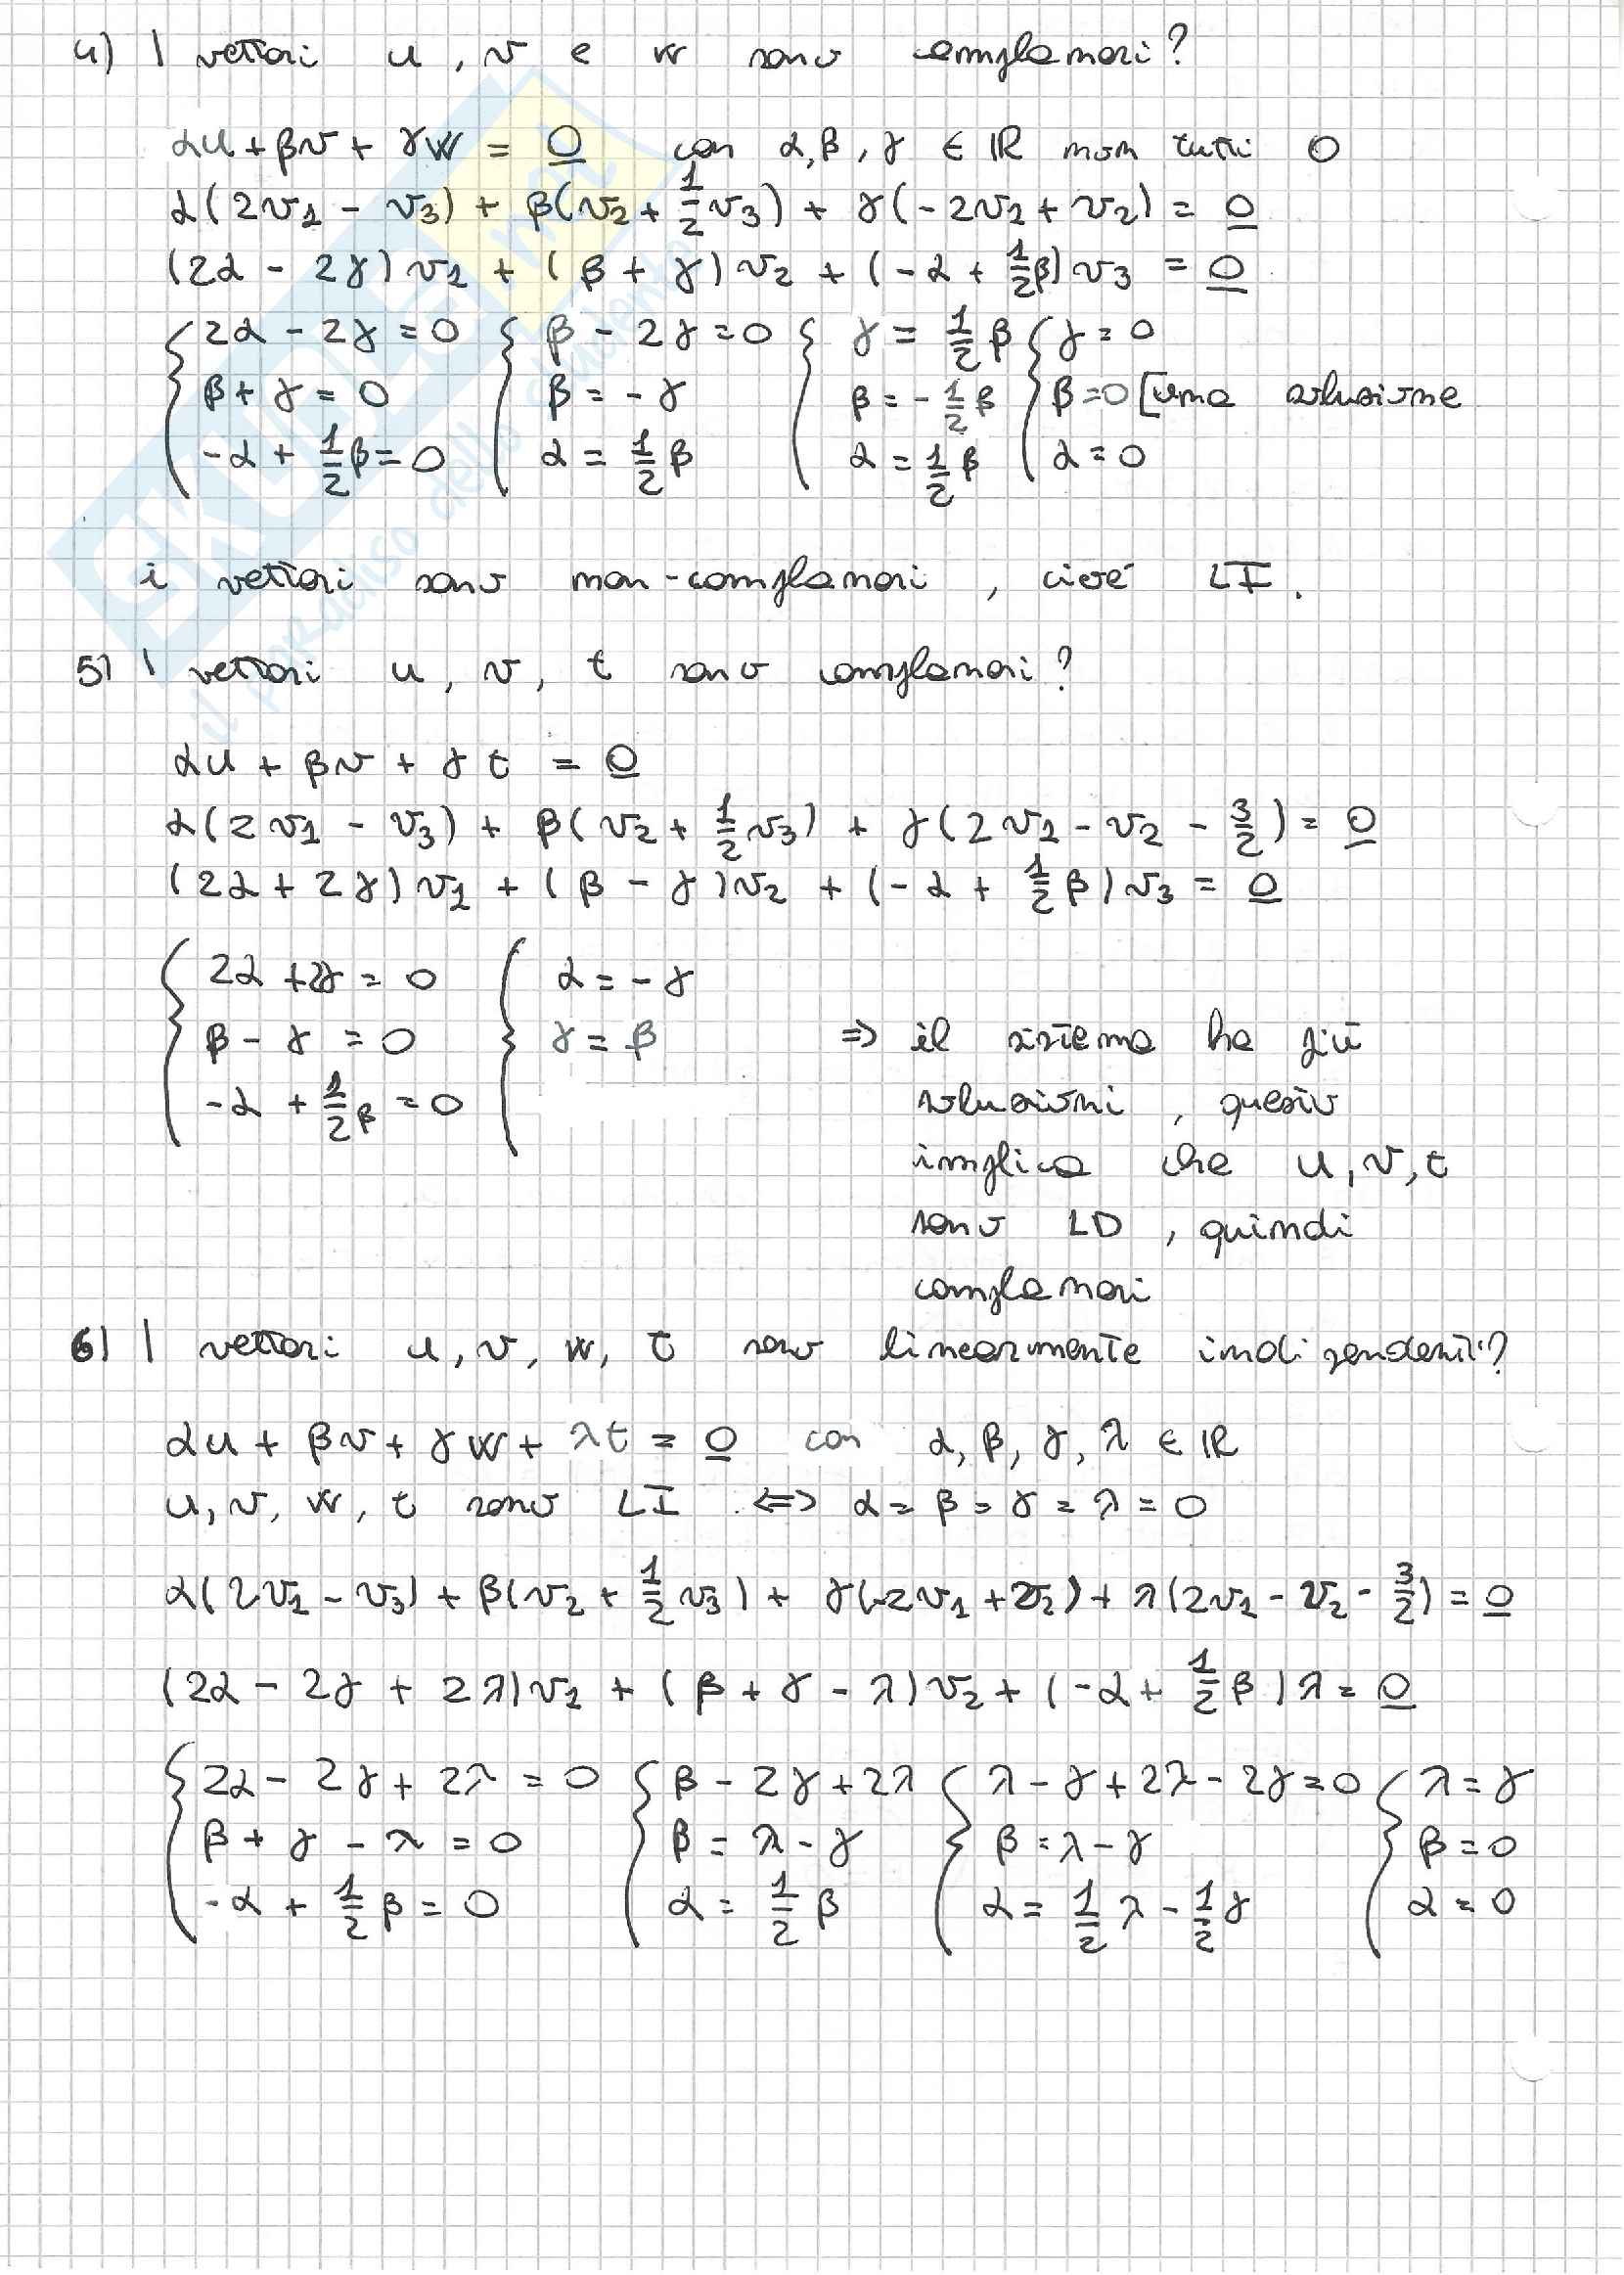 4) I vettori u, v e w sono complanari?
αu + βv + γw = 0 con α, β, γ ∈ ℝ non tutti 0
α(2v₁ - v₃) + β(v₂ + 1/2 v₃) + γ(-2v₁ + v₂) = 0
(2α - 2γ)v₁ + (β + γ)v₂ + (-α + 1/2 β)v₃ = 0
{ 2α - 2γ = 0 { β - 2γ = 0 { γ = 1/2 β { γ = 0
β + γ = 0 β = -γ β = -1/2 β β = 0 [una soluzione
-α + 1/2 β = 0 α = 1/2 β α = 1/2 β α = 0
i vettori sono non-complanari, cioè LI.
5) I vettori u, v, t sono complanari?
αu + βv + γt = 0
α(2v₁ - v₃) + β(v₂ + 1/2 v₃) + γ(2v₁ - v₂ - 3/2) = 0
(2α + 2γ)v₁ + (β - γ)v₂ + (-α + 1/2 β)v₃ = 0
{ 2α + 2γ = 0 { α = -γ
β - γ = 0 γ = β ⇒ il sistema ha più
-α + 1/2 β = 0 soluzioni, questo
implica che u, v, t
sono LD, quindi
complanari
6) I vettori u, v, w, t sono linearmente indipendenti?
αu + βv + γw + λt = 0 con α, β, γ, λ ∈ ℝ
u, v, w, t sono LI ⇔ α = β = γ = λ = 0
α(2v₁ - v₃) + β(v₂ + 1/2 v₃) + γ(-2v₁ + v₂) + λ(2v₁ - v₂ - 3/2) = 0
(2α - 2γ + 2λ)v₁ + (β + γ - λ)v₂ + (-α + 1/2 β)λ = 0
{ 2α - 2γ + 2λ = 0 { β - 2γ + 2λ { λ - γ + 2λ - 2γ = 0 { λ = γ
β + γ - λ = 0 β = λ - γ β = λ - γ β = 0
-α + 1/2 β = 0 α = 1/2 β α = 1/2 λ - 1/2 γ α = 0
SKUOLA.net
il paradiso dello studente